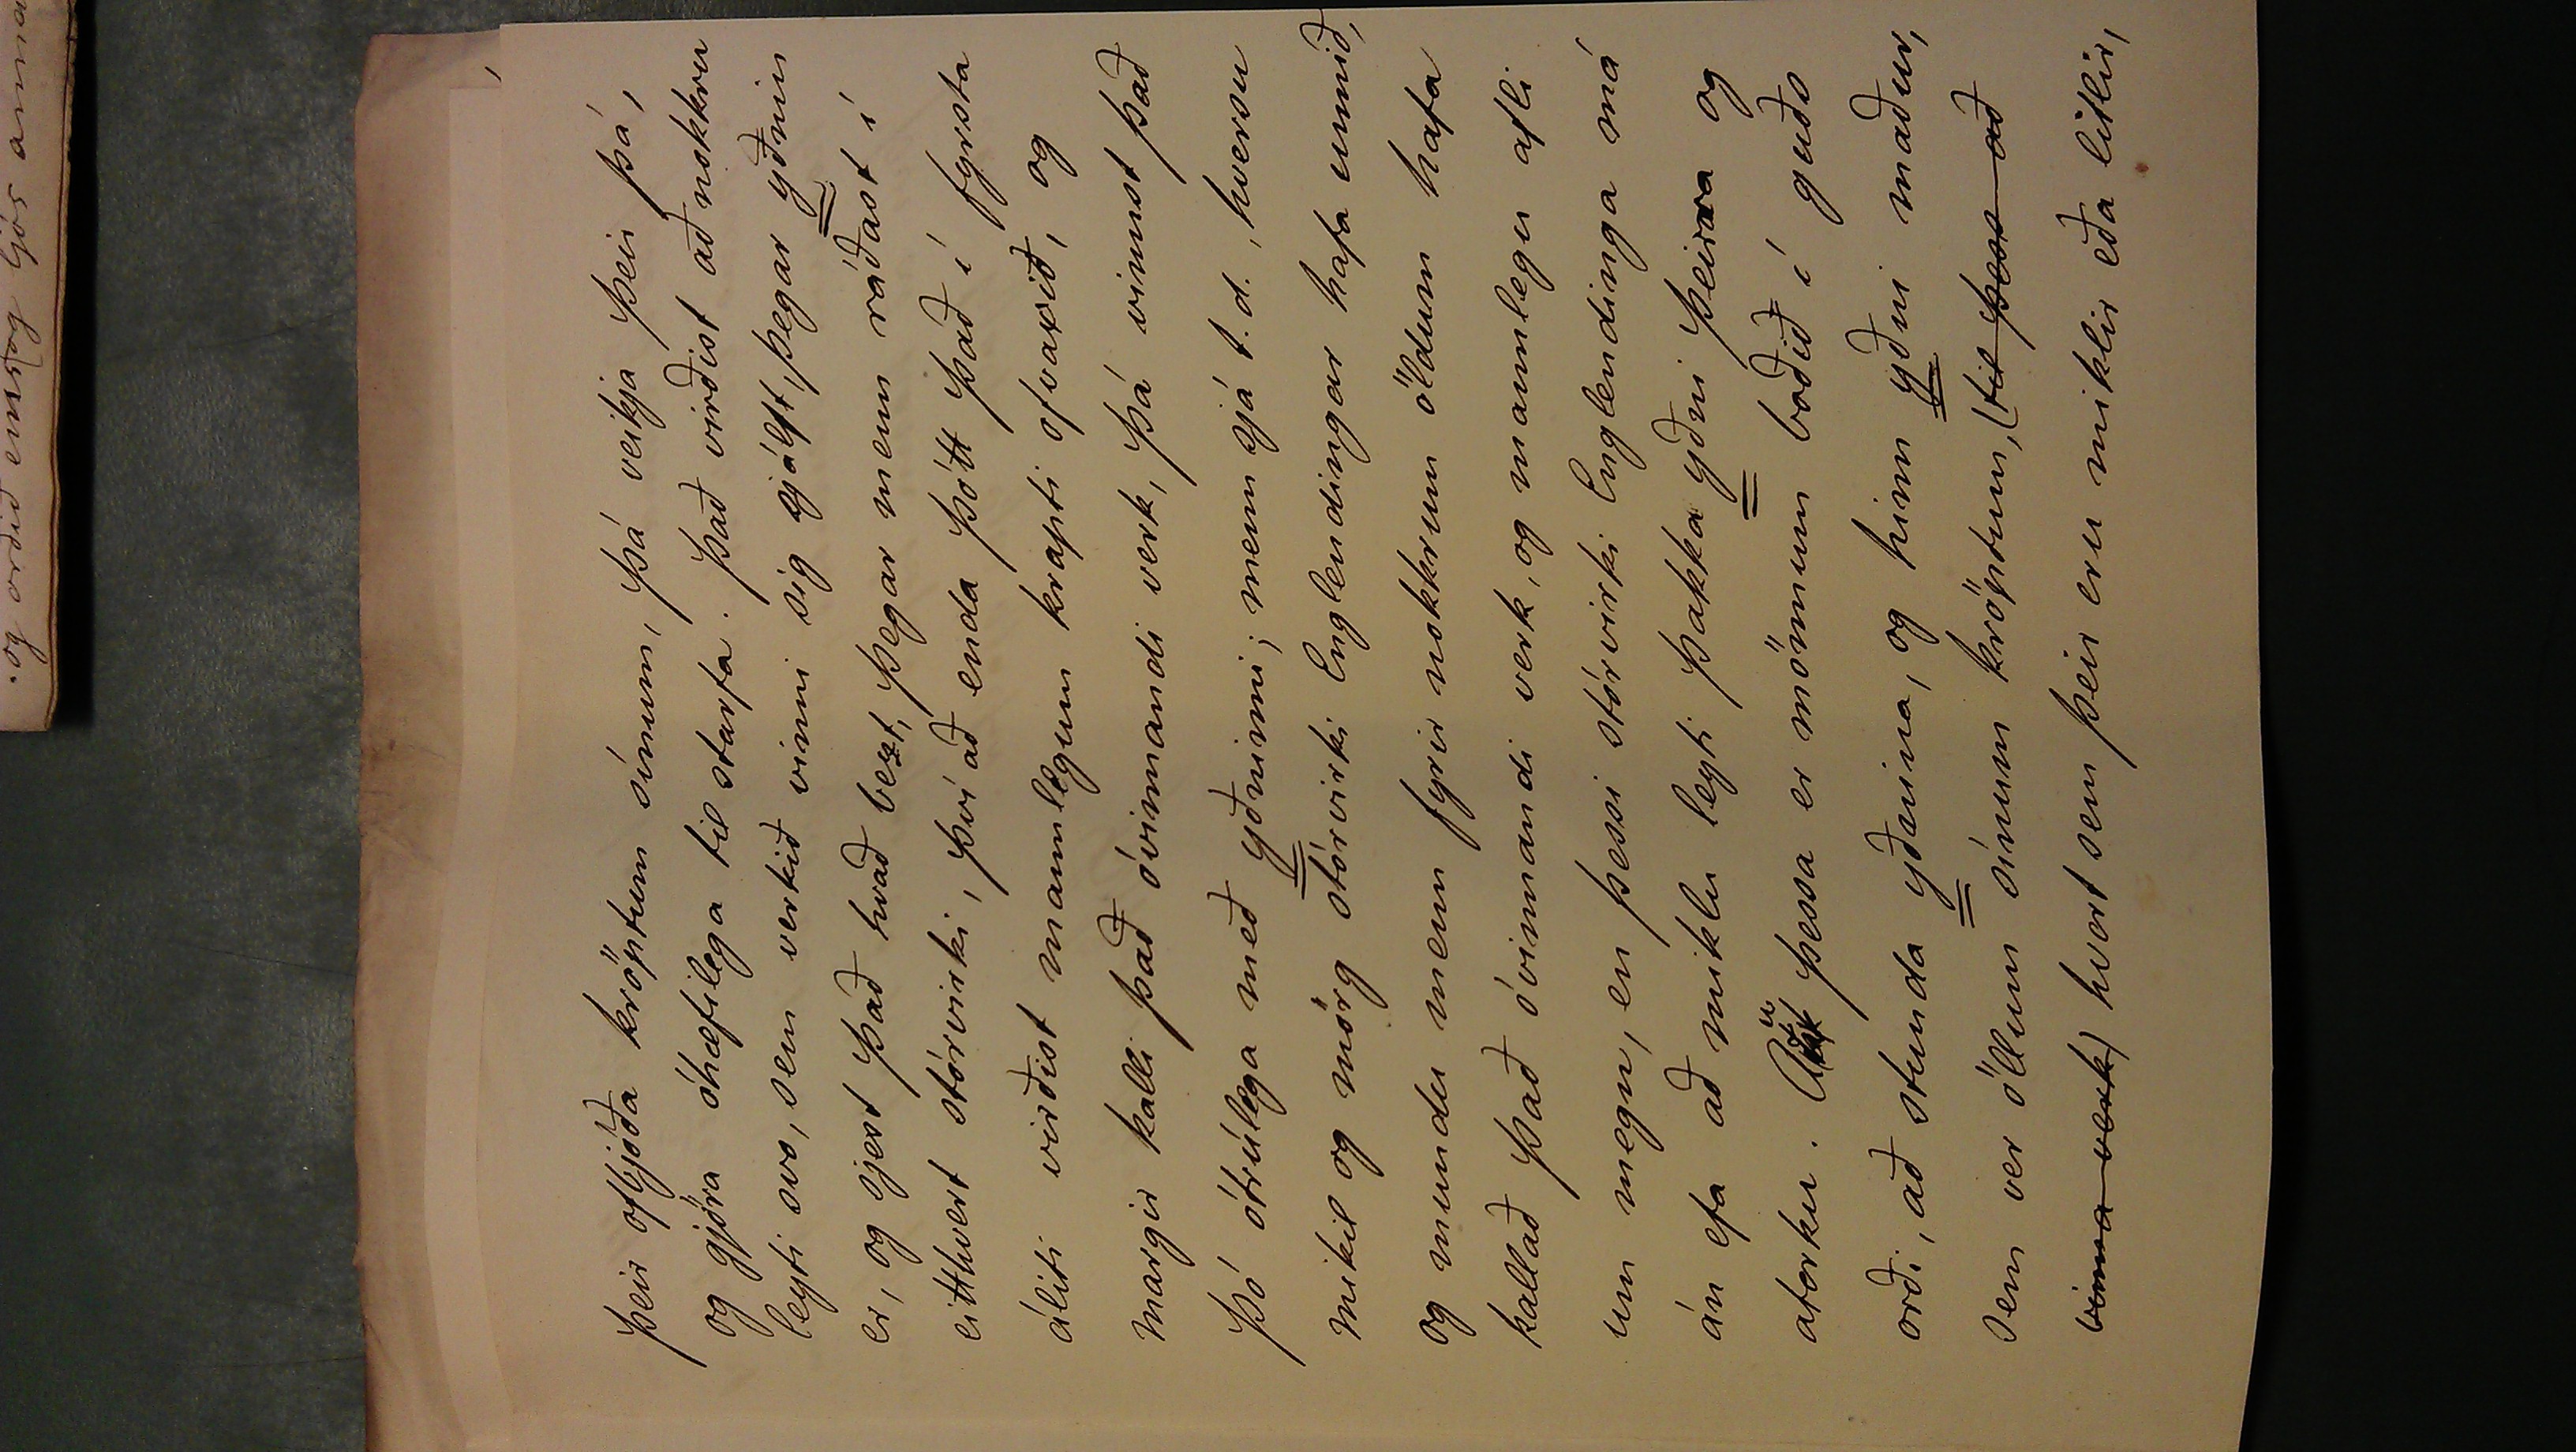 og orðið emsög ljós anna
þeir ofbjóða kröptum sínum, þá veikja þeir þá,
og gjöra óhæfilega til starfa. Það virðist að nokkru
leyti svo, sem verkið vinni sig sjálft, þegar yðnin
er, og sjest það hvað bezt, þegar menn ráðast í
eitthvert stórvirki, því að enda þótt það í fyrsta
áliti virðist mannlegum krapti ofvaxið, og
margir kalli það óvinnandi verk, þá vinnst það
þó ótrúlega með yðninni; menn sjá t.d., hversu
mikil og mörg stórvirki Englendingar hafa unnið,
og mundu menn fyrir nokkrum öldum hafa
kallað það óvinnandi verk, og mannlegu afli
um megn, en þessi stórvirki Englendinga má
án efa að miklu leyti þakka yðni þeirra og
atorku. Auk þessa er mönnum boðið í guðs
orði, að stunda yðnina, og hinn yðni maður,
sem ver öllum sínum kröptum, (til þess að
vinna verk) hvort sem þeir eru miklir eða litlir,